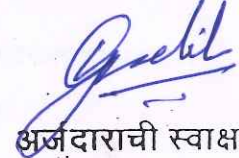 अर्जदाराची स्वाक्ष